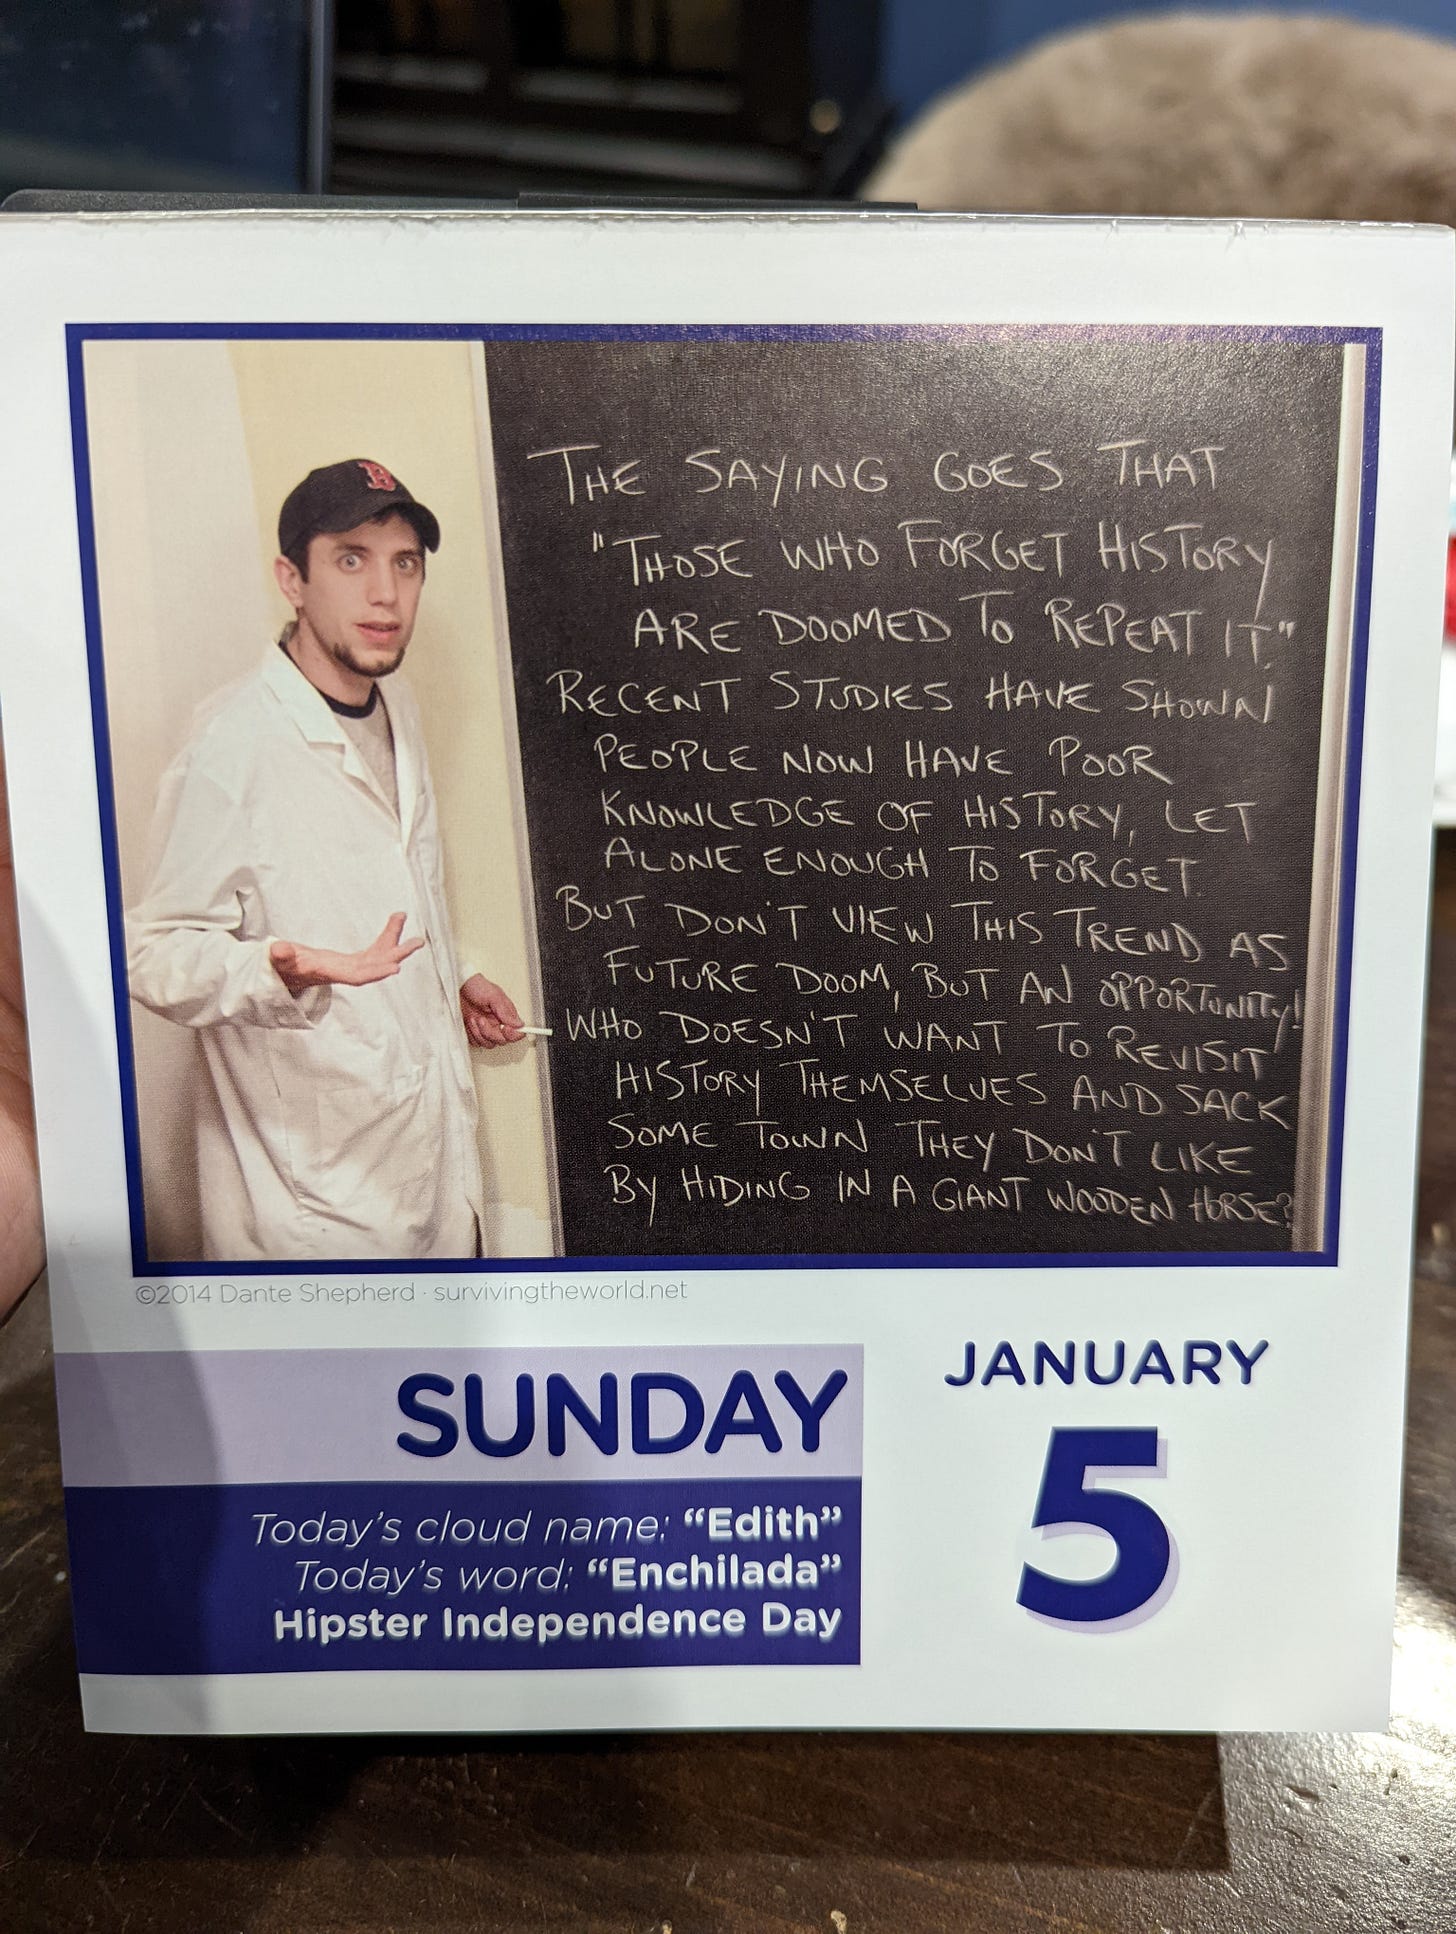 B
THE SAYING GOES THAT
"THOSE WHO FORGET HISTORY
ARE DOOMED TO REPEAT IT."
RECENT STUDIES HAVE SHOWN
PEOPLE NOW HAVE POOR
KNOWLEDGE OF HISTORY, LET
ALONE ENOUGH TO FORGET.
BUT DON'T VIEW THIS TREND AS
FUTURE DOOM, BUT AN OPPORTUNITY!
WHO DOESN'T WANT TO REVISIT
HISTORY THEMSELVES AND SACK
SOME TOWN THEY DON'T LIKE
BY HIDING IN A GIANT WOODEN HORSE?
©2014 Dante Shepherd · survivingtheworld.net
SUNDAY
Today's cloud name: “Edith”
Today's word: “Enchilada”
Hipster Independence Day
JANUARY
5